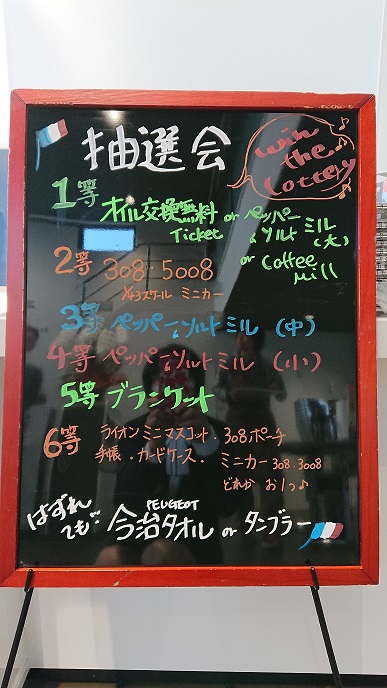 抽選会
win the Lottery
1等 オイル交換無料 Ticket or ペッパー&ソルトミル(大) or Coffee Mill
2等 308・5008
1/43スケール ミニカー
3等 ペッパー&ソルトミル (中)
4等 ペッパー&ソルトミル (小)
5等 ブランケット
6等 ライオンミニマスコット・308ポーチ
手帳・カードケース・ミニカー308・3008
どれか お1つ♪
はずれても!! PEUGEOT 今治タオル or タンブラー